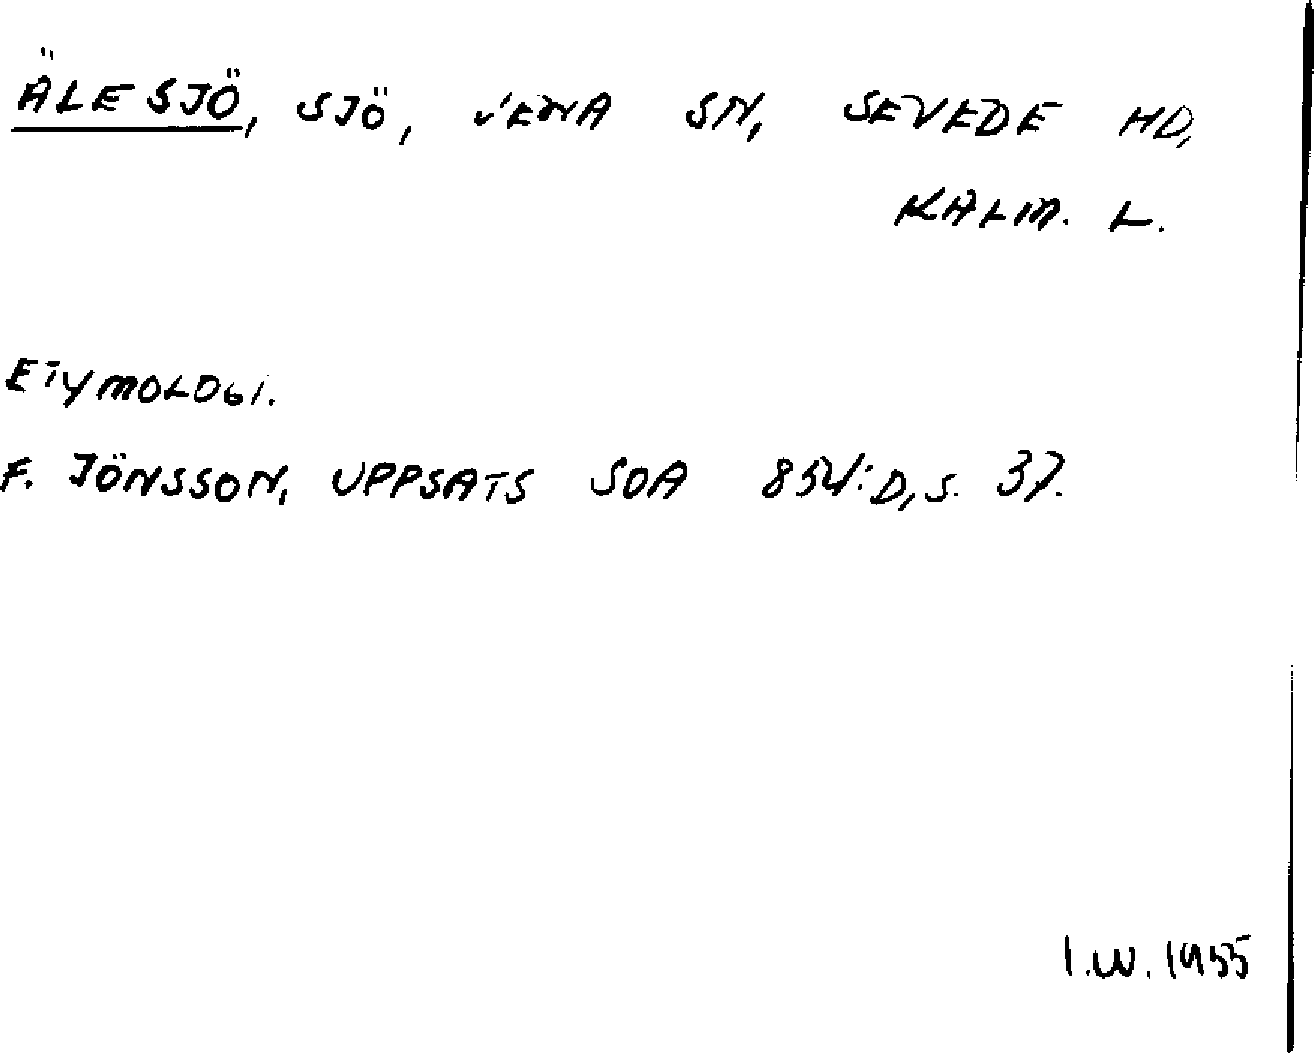 ÄLESJÖ, SJÖ, VENA SN, SEVEDE HD,
KALM. L.
ETYMOLOGI.
F. JÖNSSON, UPPSATS SOA 854:D, S. 37.
I.W. 1955